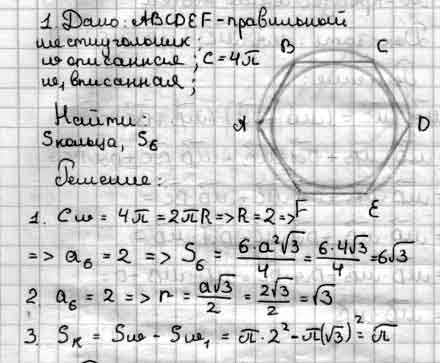 1. Дано: ABCDEF - правильный
шестиугольник;
ω описанная; C = 4π
ω₁ вписанная;
Найти:
Sкольца, S₆
Решение:
B C
A D
F E
1. Cω = 4π = 2πR => R = 2 =>
=> a₆ = 2 => S₆ = 6·a²√3/4 = 6·4√3/4 = 6√3
2. a₆ = 2 => r = a√3/2 = 2√3/2 = √3
3. Sк = Sω - Sω₁ = π·2² - π(√3)² = π